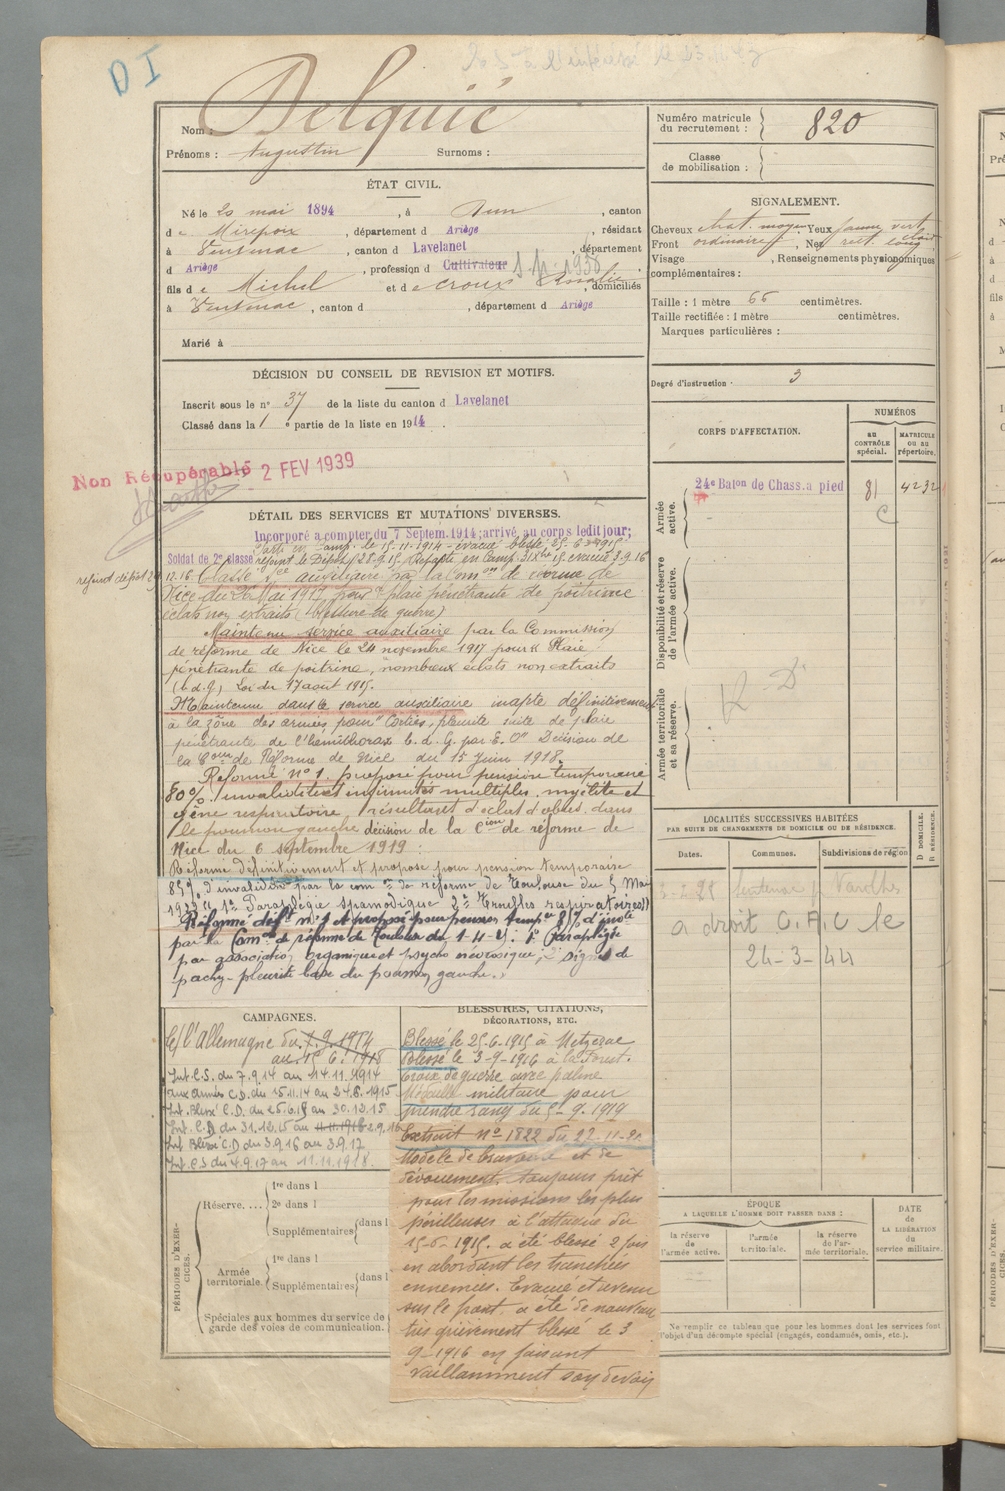 D I
Nom : Delquié
Prénoms : Augustin Surnoms :
Numéro matricule du recrutement : 820
Classe de mobilisation :
ÉTAT CIVIL.
Né le 20 mai 1894, à Dun, canton
de Mirepoix, département d Ariège, résidant
à Ventenac, canton d Lavelanet, département
d Ariège, profession d Cultivateur
fils de Michel et de Croux, domiciliés
à Ventenac, canton d , département d Ariège
Marié à
SIGNALEMENT.
Cheveux chat. moyen Yeux jaune vert
Front ordinaire, Nez rect. long
Visage , Renseignements physionomiques
complémentaires :
Taille : 1 mètre 66 centimètres.
Taille rectifiée : 1 mètre centimètres.
Marques particulières :
Degré d'instruction : 3
DÉCISION DU CONSEIL DE REVISION ET MOTIFS.
Inscrit sous le n° 37 de la liste du canton d Lavelanet
Classé dans la 1 e partie de la liste en 1914.
Non Récupérable 2 FEV 1939
CORPS D'AFFECTATION.
NUMÉROS
au CONTRÔLE spécial.
MATRICULE ou au répertoire.
Armée active.
24e Baton de Chass. a pied 81 4232
Disponibilité et réserve de l'armée active.
Armée territoriale et sa réserve.
DÉTAIL DES SERVICES ET MUTATIONS DIVERSES.
Incorporé a compter du 7 Septem. 1914; arrivé au corps ledit jour;
Soldat de 2e classe
rejoint dépôt
Classé service auxiliaire par la Comon de réforme de
Nice du Mai 1917 pour plaie pénétrante de poitrine
éclats non extraits (blessure de guerre)
Maintenu service auxiliaire par la Commission
de réforme de Nice le 24 novembre 1917 pour « Plaie
pénétrante de poitrine, nombreux éclats non extraits
(b.d.g) Loi du 17 août 1915.
Maintenu dans le service auxiliaire inapte définitivement
à la zône des armées pour cortico pleurite suite de plaie
pénétrante de l'hémithorax b. d. G. par Décision de
la Cion de Réforme de Nice du 15 juin 1918.
Réformé n° 1, proposé pour pension temporaire
80% invalidité et infirmités multiples, myélite et
gêne respiratoire, résultant d'éclat d'obus dans
le poumon gauche décision de la Cion de réforme de
Nice du 6 septembre 1919 :
Réformé définitivement et proposé pour pension temporaire
85% d'invalidité par la comon de réforme de Toulouse du 5 Mai
1922 « 1° Paraplégie spasmodique 2° Troubles respiratoires »
Réformé déft n° 1 et proposé pour pension tempre 85% d'invté
par la Comon de réforme de Toulouse du 1-4-25 : 1° Paraplégie
par association organique et psycho névrosique, 2° signes de
pachy-pleurite base du poumon gauche.
LOCALITÉS SUCCESSIVES HABITÉES
PAR SUITE DE CHANGEMENTS DE DOMICILE OU DE RÉSIDENCE.
Dates. Communes. Subdivisions de région
D DOMICILE.
R RÉSIDENCE.
a droit C.A.C le
24-3-44
CAMPAGNES.
c/ l'Allemagne du 7.9.1914
Int. C.S. du 7.9.14 au 14.11.1914
aux Armées C.D. du 15.11.14 au 24.6.1915
Int. Blessé C.D. du 25.6.15 au 30.12.15
Int. C.D du 31.12.15 au 11.11.1918 2.9.16
Int. Blessé C.D du 3.9.16 au 3.9.17
Int. C.S du 4.9.17 au 11.11.1918.
BLESSURES, CITATIONS,
DÉCORATIONS, ETC.
Blessé le 25-6-1915 à Metzeral
Blessé le 3-9-1916 à
Croix de guerre avec palme
Médaille militaire pour
prendre rang du
Extrait n° 1822 du
Modèle de bravoure et de
dévouement, toujours prêt
pour les missions les plus
périlleuses à l'attaque du
15-6-1915. a été blessé 2 fois
en abordant les tranchées
ennemies. Evacué et revenu
sur le front a été de nouveau
très grièvement blessé le 3
9-1916 en faisant
vaillamment son devoir
PÉRIODES D'EXERCICES.
Réserve. .... 1re dans l
2e dans l
Supplémentaires dans l
Armée territoriale. 1re dans l
Supplémentaires dans l
Spéciales aux hommes du service de
garde des voies de communication.
ÉPOQUE
A LAQUELLE L'HOMME DOIT PASSER DANS :
la réserve de l'armée active.
l'armée territoriale.
la réserve de l'armée territoriale.
DATE de LA LIBÉRATION du service militaire.
Ne remplir ce tableau que pour les hommes dont les services font
l'objet d'un décompte spécial (engagés, condamnés, omis, etc.).